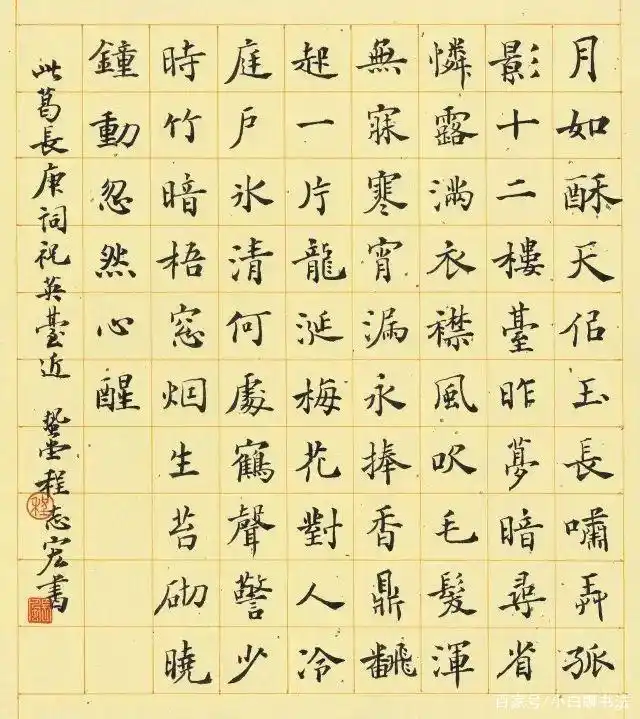 月如酥天佀玉長嘯弄孤
影十二樓臺昨夢暗尋省
憐露滿衣襟風吹毛髮渾
無寐寒宵漏永捧香鼎飜
起一片龍涎梅花對人冷
庭戶氷清何處鶴聲警少
時竹暗梧窓烟生苔砌曉
鐘動忽然心醒
此葛長庚詞祝英臺近 堂程志宏書
百家号